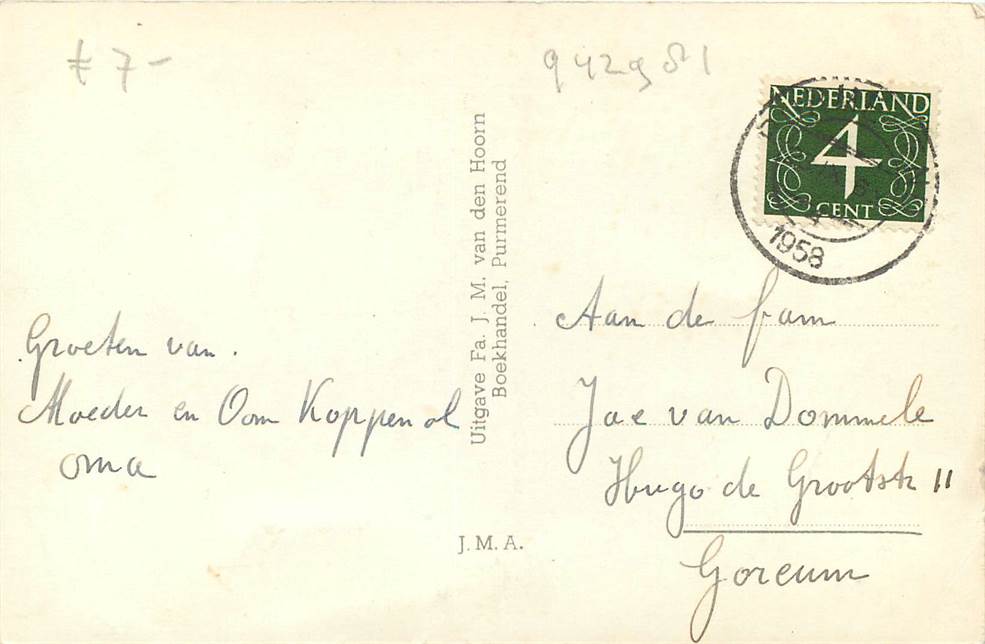 € 7-
942981
NEDERLAND
4
CENT
1958
Uitgave Fa. J. M. van den Hoorn
Boekhandel, Purmerend
J. M. A.
Groeten van.
Moeder en Oom Koppenol
oma
Aan de fam
Jac van Dommele
Hugo de Grootstr 11
Gorcum